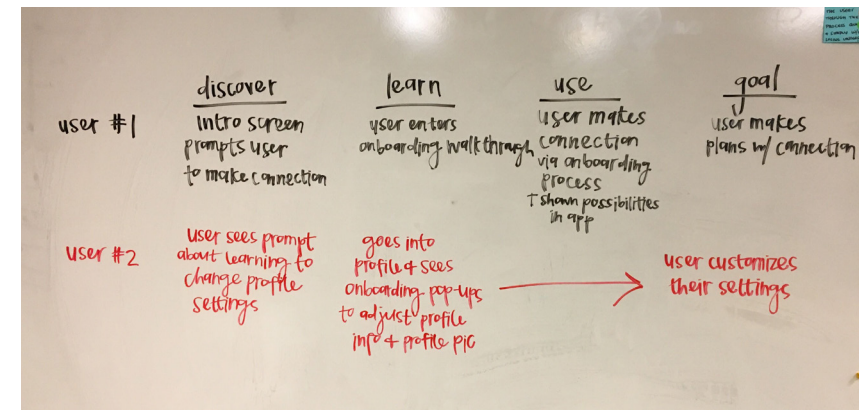 discover
learn
use
goal
user #1
intro screen
prompts user
to make connection
user enters
onboarding walkthrough
user makes
connection
via onboarding
process
↑ shown possibilities
in app
user makes
plans w/ connection
user #2
user sees prompt
about learning to
change profile
settings
goes into
profile + sees
onboarding pop-ups
to adjust profile
info + profile pic
user customizes
their settings
THE USER
THROUGH THE
PROCESS